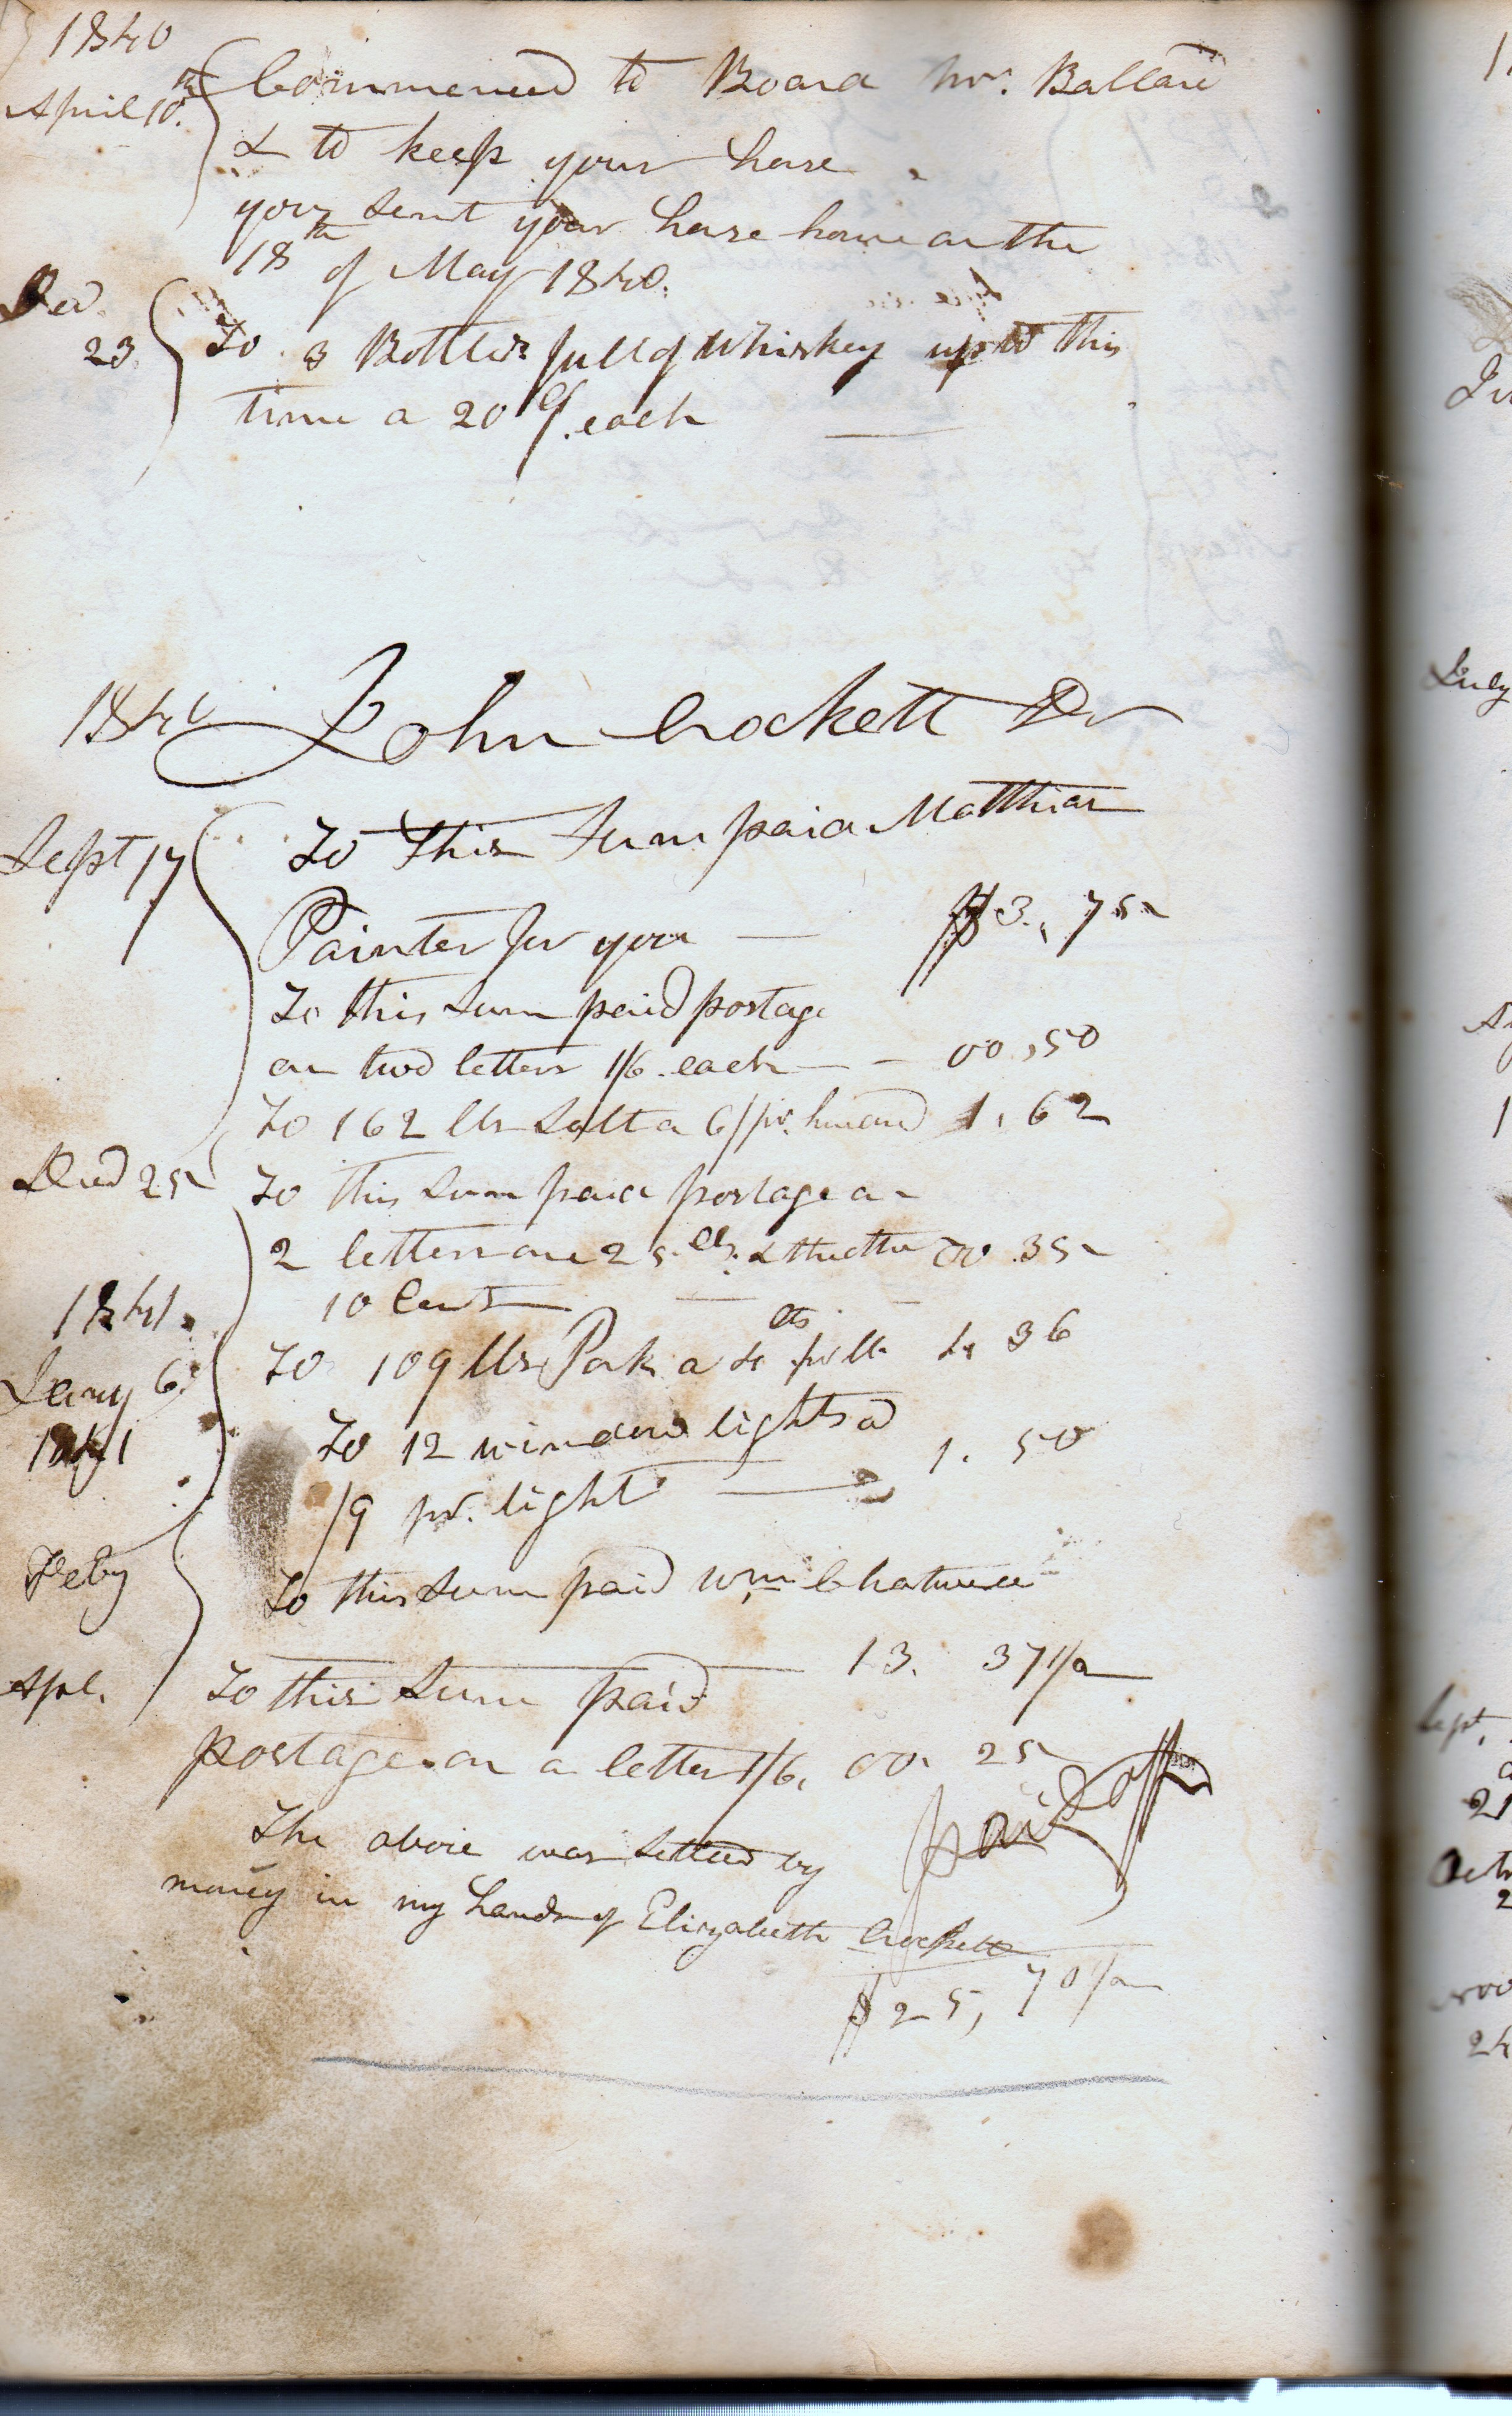 1840
April 10th. Commenced to Board Mr. Ballard
& to keep your horse
you sent your horse home on the
18th of May 1840.
Decr
23 To 3 Bottles full of Whiskey up to this
time a 20 c/. each
1840 John Crockett Dr
Sept 17 To this Sum paid Matthias
Painter for you — $3, 75
To this Sum paid postage
on two letters 1/6. each — 00,50
To 162 lbs Salt a 6/ pr. hundred 1. 62
Decd 25 To this Sum paid postage a
2 letters one 25 cts. & the other 00.35
10 Cents
1841.
Jany 6. To 109 lbs Pork a 4 cts pr lb. 4, 36
1841 To 12 window lights a
/9 pr. light — 1. 50
Feby To this Sum paid Wm
13. 37 1/2
Apl. To this Sum paid
postage on a letter 1/6, 00. 25
paid off
The above was settled by
money in my hands of Elizabeth Crockett
$25, 70 1/2
July
Sept,
21
Octr
2
24